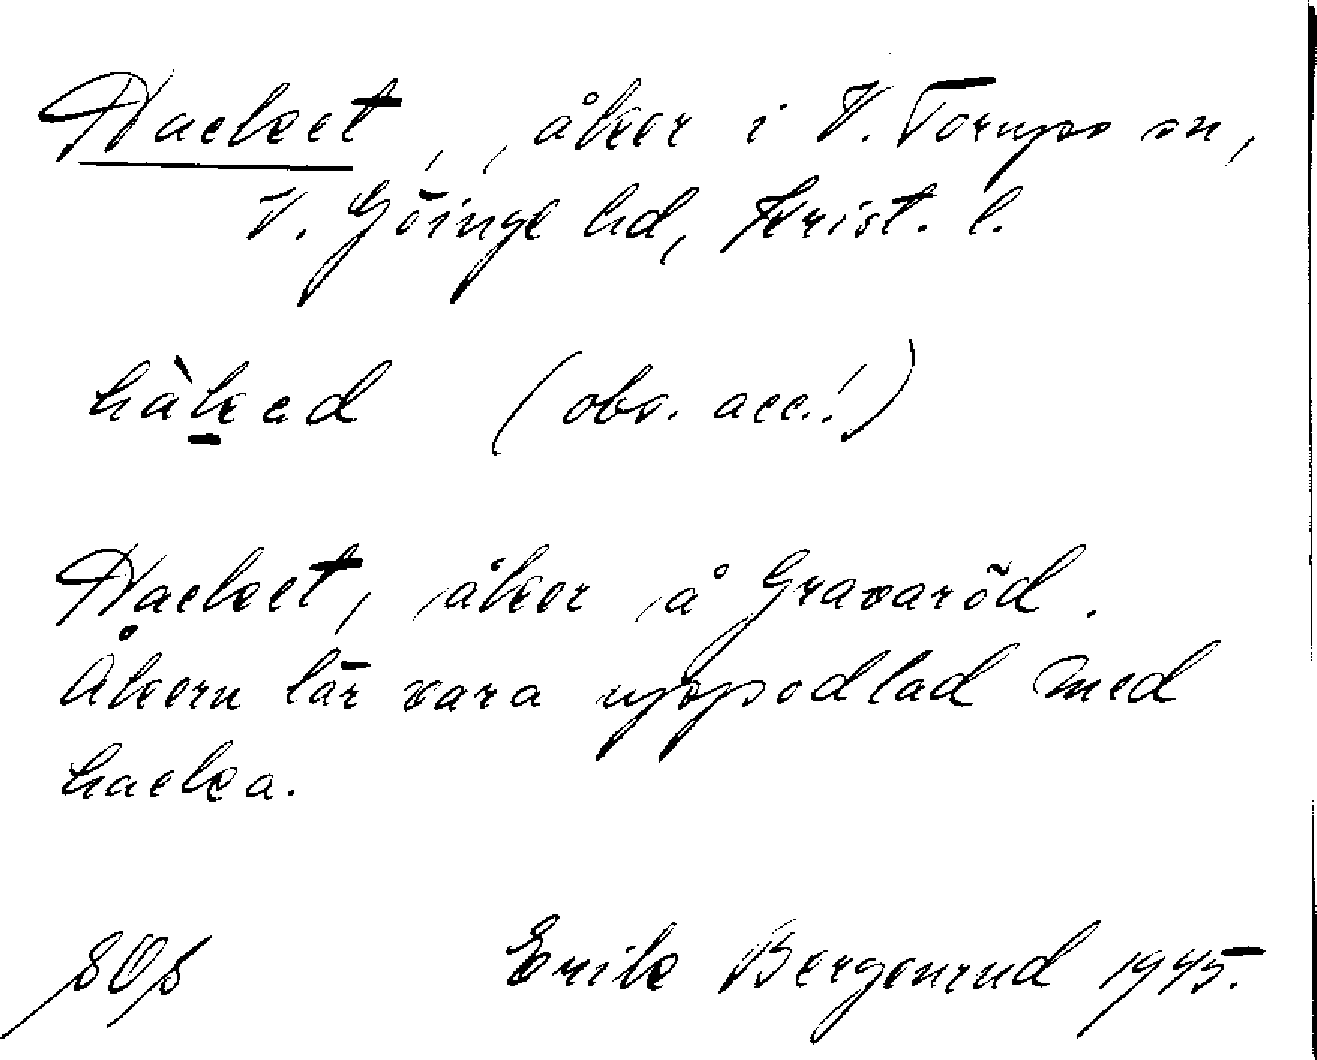 Hacket, åker i V. Torups sn,
V. Göinge hd, Krist. l.
hàkəd (obs. acc.!)
Hacket, åker å Gravaröd.
Åkern lär vara uppodlad med
hacka.
Erik Bergenrud 1945.